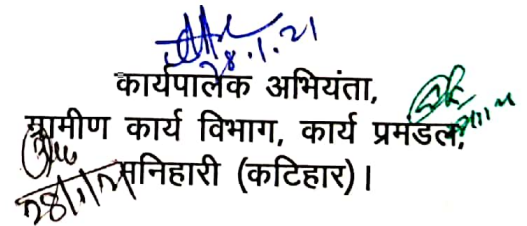 28.1.21
कार्यपालक अभियंता,
ग्रामीण कार्य विभाग, कार्य प्रमंडल,
मनिहारी (कटिहार)।
28/1/21